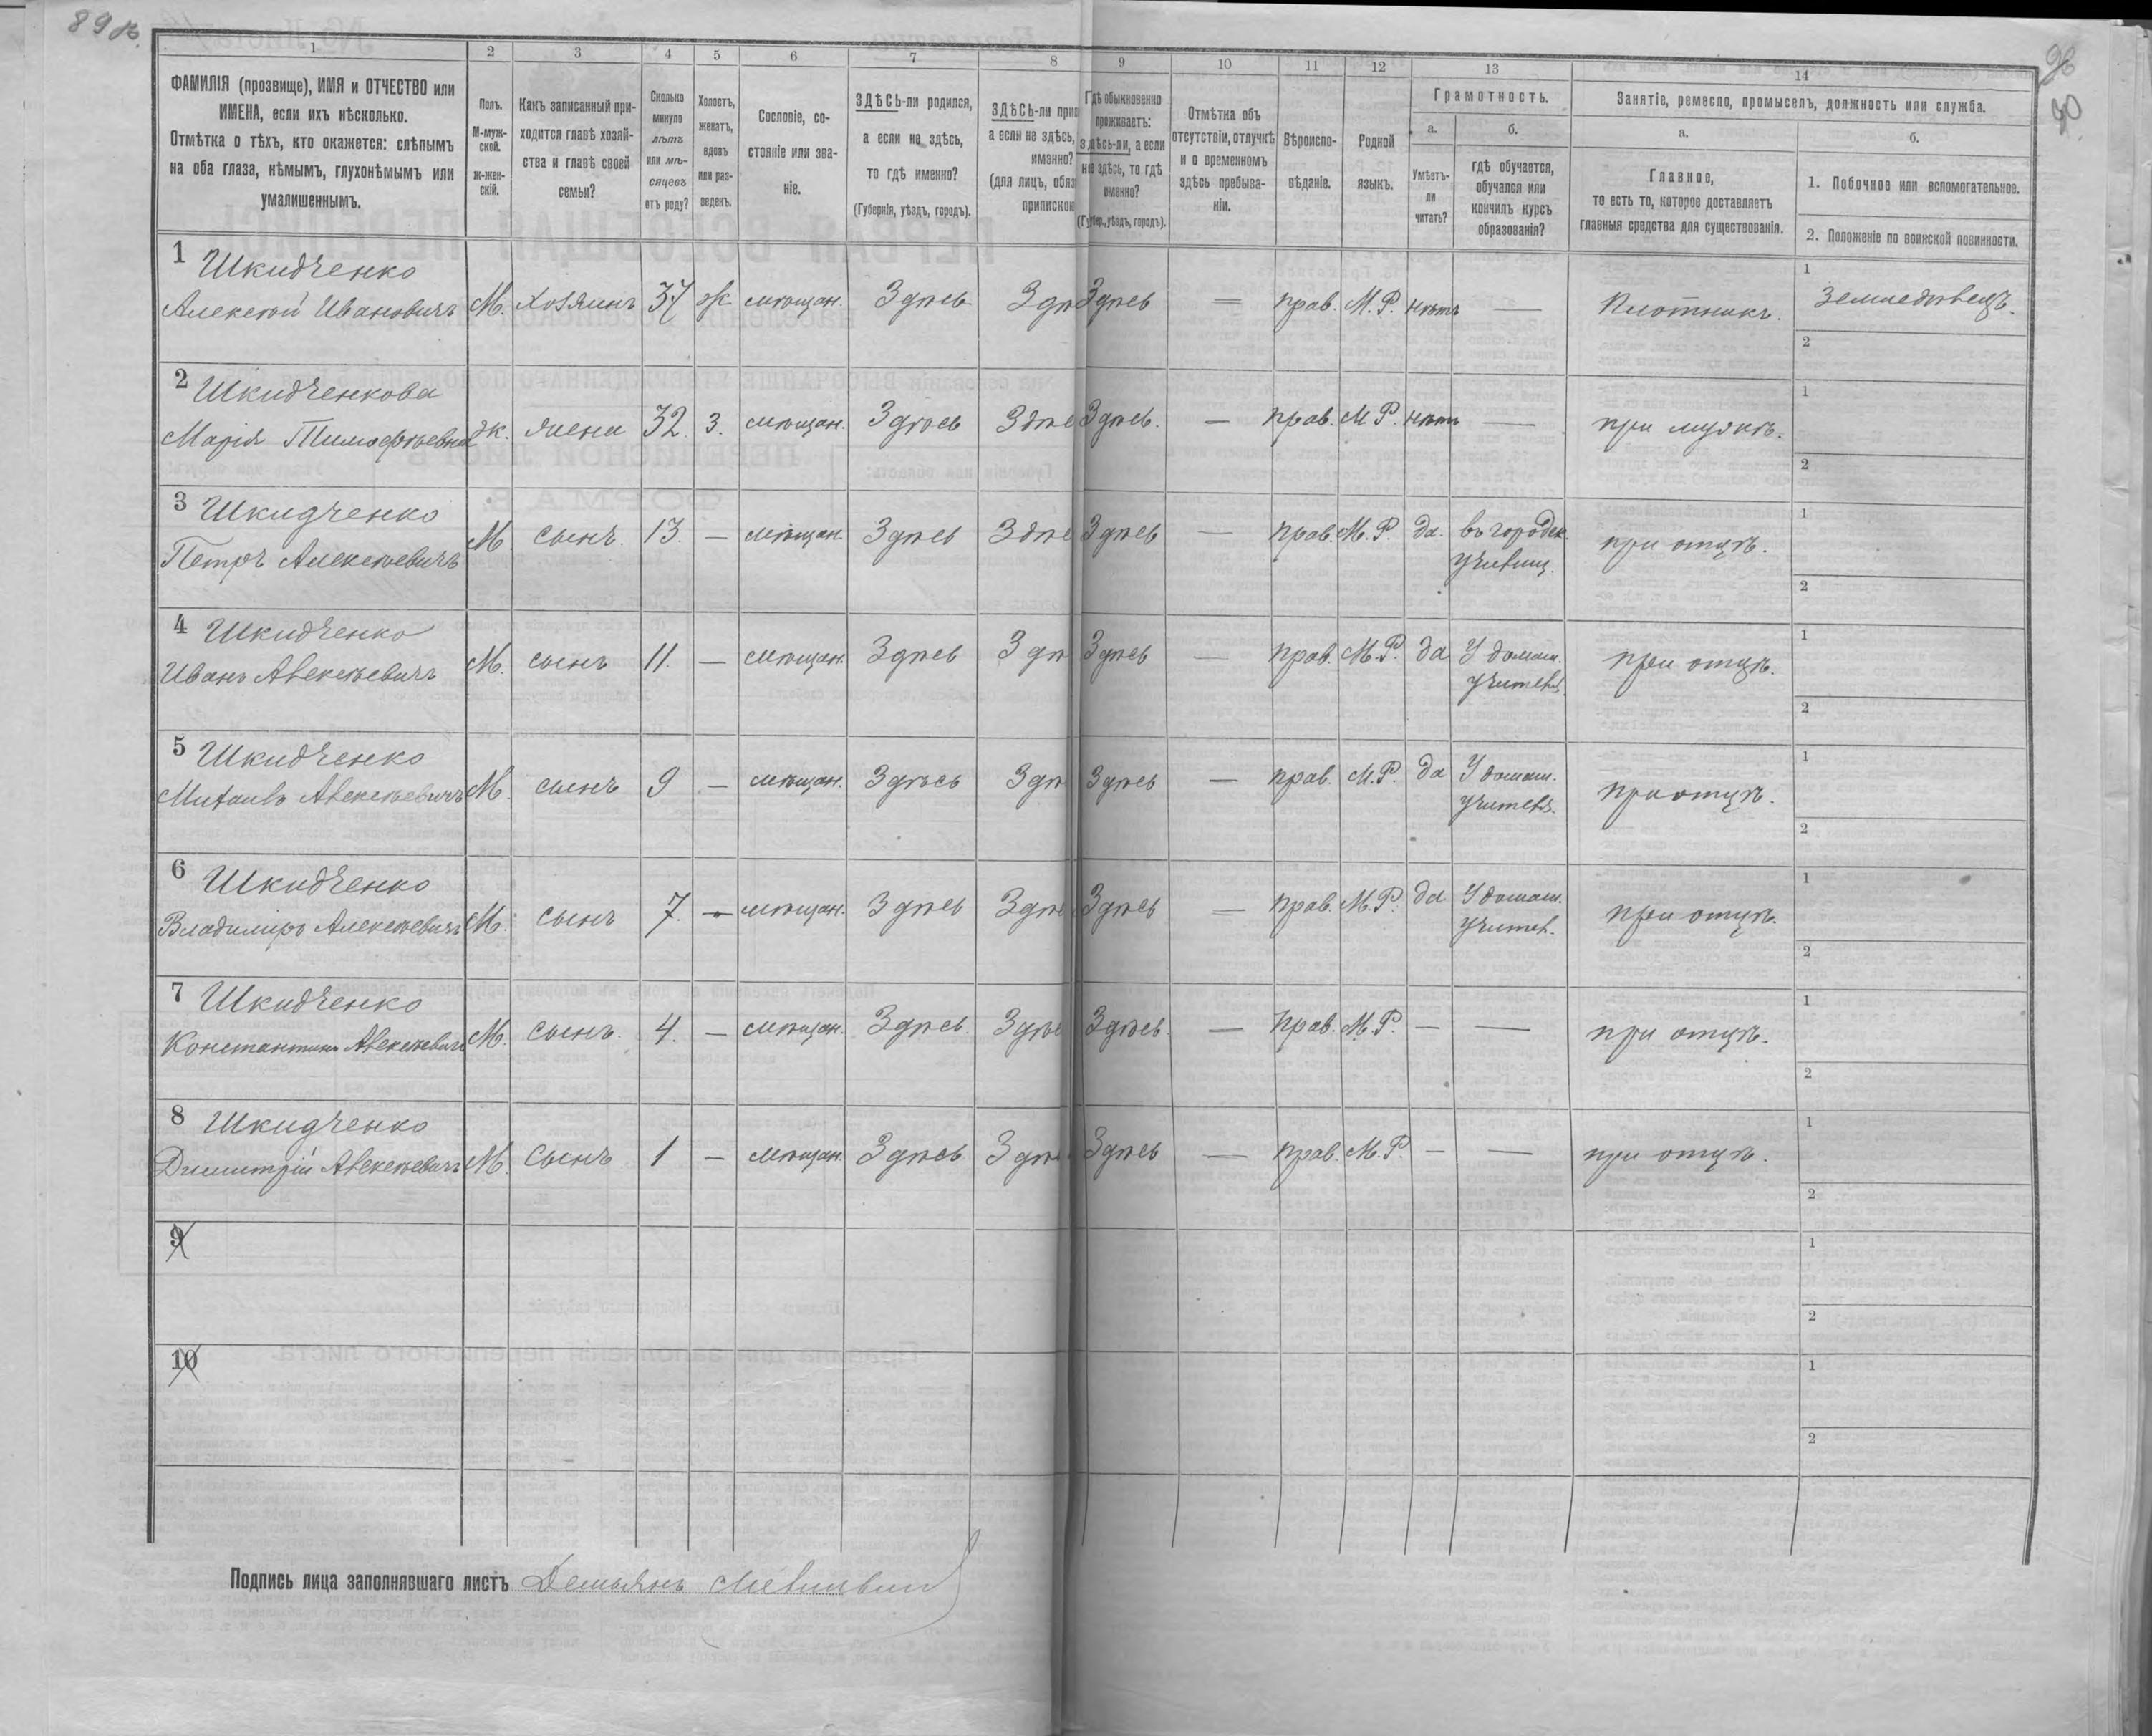 89 об.
96
90
1 2 3 4 5 6 7 8 9 10 11 12 13 14
ФАМИЛІЯ (прозвище), ИМЯ и ОТЧЕСТВО или
ИМЕНА, если ихъ нѣсколько.
Отмѣтка о тѣхъ, кто окажется: слѣпымъ
на оба глаза, нѣмымъ, глухонѣмымъ или
умалишеннымъ.
Полъ.
М-муж-
ской.
ж-жен-
скій.
Какъ записанный при-
ходится главѣ хозяй-
ства и главѣ своей
семьи?
Сколько
минуло
лѣтъ
или мѣ-
сяцевъ
отъ роду?
Холостъ,
женатъ,
вдовъ
или раз-
веденъ.
Сословіе, со-
стояніе или зва-
ніе.
ЗДѢСЬ-ли родился,
а если не здѣсь,
то гдѣ именно?
(Губернія, уѣздъ, городъ).
ЗДѢСЬ-ли припи
а если не здѣсь,
именно?
(для лицъ, обяз
приписков
Гдѣ обыкновенно
проживаетъ:
здѣсь-ли, а если
не здѣсь, то гдѣ
именно?
(Губер., уѣздъ, городъ).
Отмѣтка объ
отсутствіи, отлучкѣ
и о временномъ
здѣсь пребыва-
ніи.
Вѣроиспо-
вѣданіе.
Родной
языкъ.
Грамотность.
а.
Умѣетъ-
ли
читать?
б.
гдѣ обучается,
обучался или
кончилъ курсъ
образованія?
Занятіе, ремесло, промыселъ, должность или служба.
а.
Главное,
то есть то, которое доставляетъ
главныя средства для существованія.
б.
1. Побочное или вспомогательное.
2. Положеніе по воинской повинности.
1 Шкидченко
Алексѣй Ивановичъ М. хозяинъ 37 ж мѣщан. Здѣсь Здѣ Здѣсь — прав. М. Р. нѣтъ — Плотникъ. 1 Земледѣлецъ.
2
2 Шкидченкова
Марія Тимофѣевна ж. жена 32. з. мѣщан. Здѣсь Здѣс Здѣсь. — прав. М Р. нѣтъ — при мужѣ. 1
2
3 Шкидченко
Петръ Алексѣевичъ М. сынъ. 13. — мѣщан. Здѣсь Здѣс Здѣсь — прав. М. Р. да. въ городск. при отцѣ. 1
училищ.
2
4 Шкидченко
Иванъ Алексѣевичъ М. сынъ 11. — мѣщан. Здѣсь Здѣ Здѣсь — прав. М. Р. да У домаш. при отцѣ. 1
учителя
2
5 Шкидченко
Михаилъ Алексѣевичъ М. сынъ 9 — мѣщан. Здѣсь Здѣ Здѣсь — прав. М. Р. да У домаш. при отцѣ. 1
учителя.
2
6 Шкидченко
Владиміръ Алексѣевичъ М. сынъ 7. — мѣщан. Здѣсь Здѣс Здѣсь — прав. М. Р. да У домаш. при отцѣ. 1
учител.
2
7 Шкидченко
Константинъ Алексѣевичъ М. сынъ. 4. — мѣщан. Здѣсь. Здѣс Здѣсь. — прав. М. Р. — — при отцѣ. 1
2
8 Шкидченко
Димитрій Алексѣевичъ М. сынъ 1 — мѣщан. Здѣсь Здѣс Здѣсь — прав. М. Р. — — при отцѣ. 1
2
9 1
2
10 1
2
Подпись лица заполнявшаго листъ Демьянъ